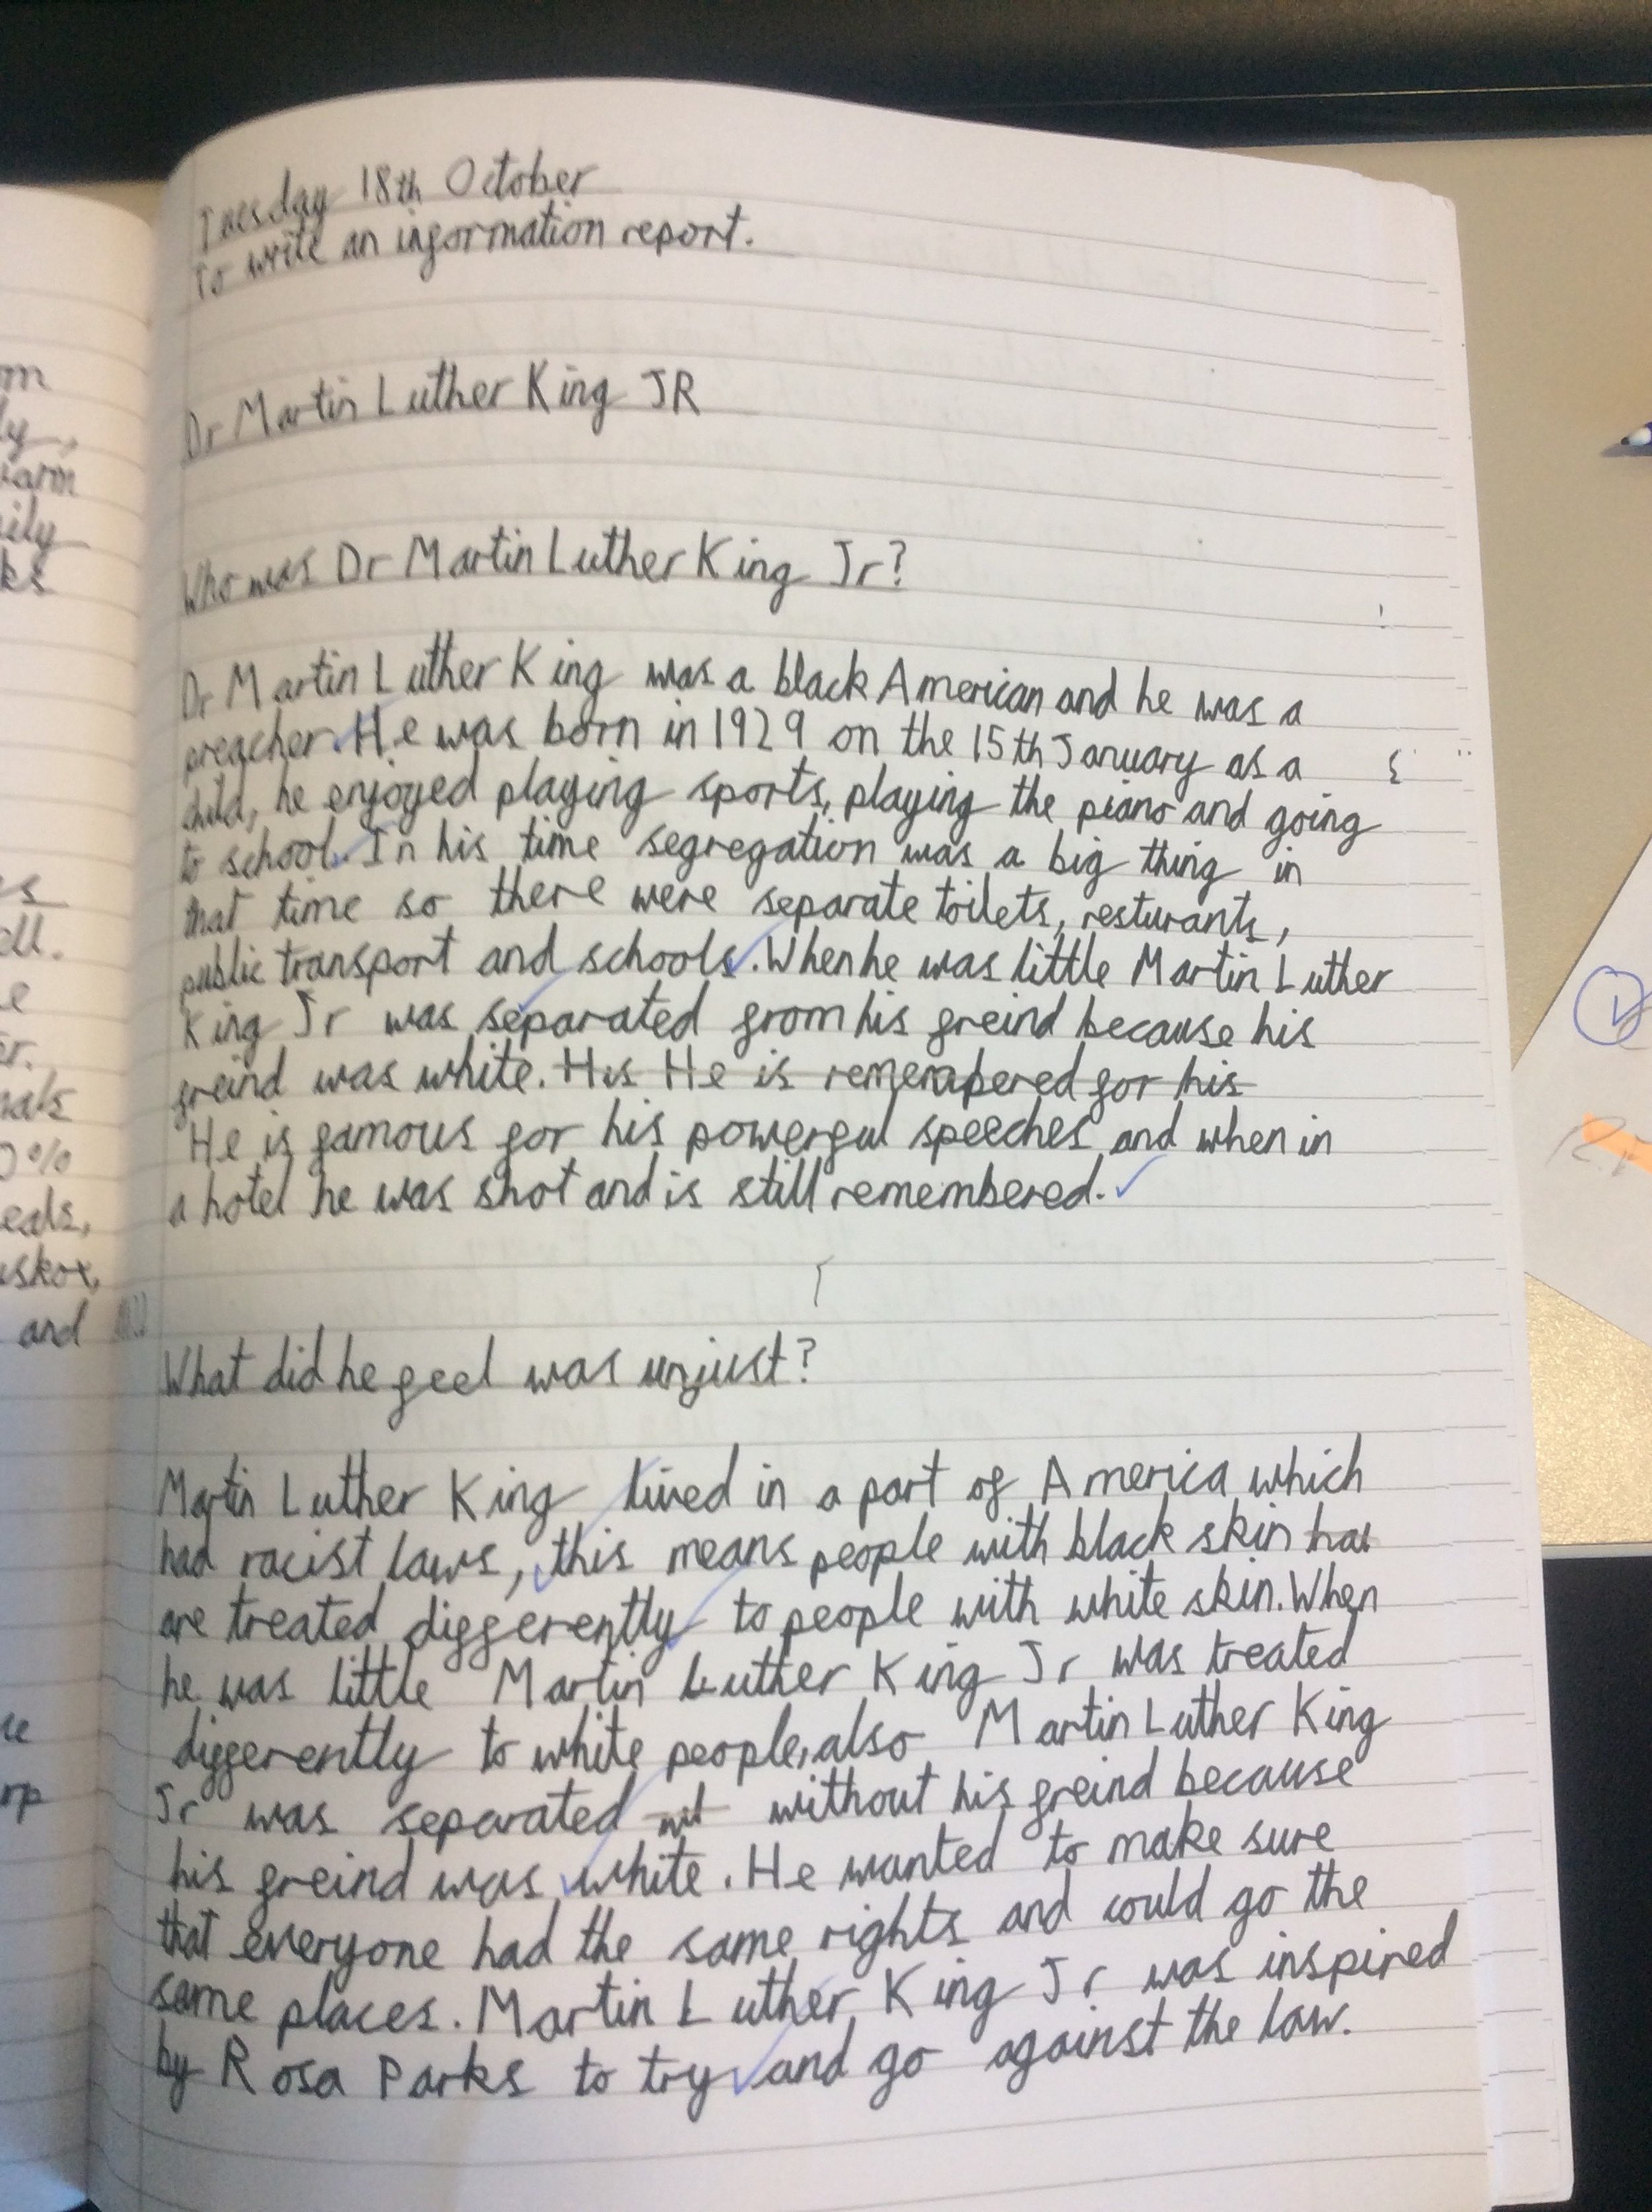 Tuesday 18th October
To write an information report.
Dr Martin Luther King JR
Who was Dr Martin Luther King Jr?
Dr Martin Luther King was a black American and he was a
preacher. He was born in 1929 on the 15th January as a
child, he enjoyed playing sports, playing the piano and going
to school. In his time segregation was a big thing in
that time so there were separate toilets, resturants,
public transport and schools. When he was little Martin Luther
King Jr was separated from his freind because his
freind was white. His He is remempered for his
He is famous for his powerful speeches and when in
a hotel he was shot and is still remembered.
What did he feel was unjust?
Martin Luther King lived in a part of America which
had racist laws, this means people with black skin hav
are treated differently to people with white skin. When
he was little Martin Luther King Jr was treated
differently to white people, also Martin Luther King
Jr was separated wit without his freind because
his freind was white. He wanted to make sure
that everyone had the same rights and could go the
same places. Martin Luther King Jr was inspired
by Rosa Parks to try and go against the law.